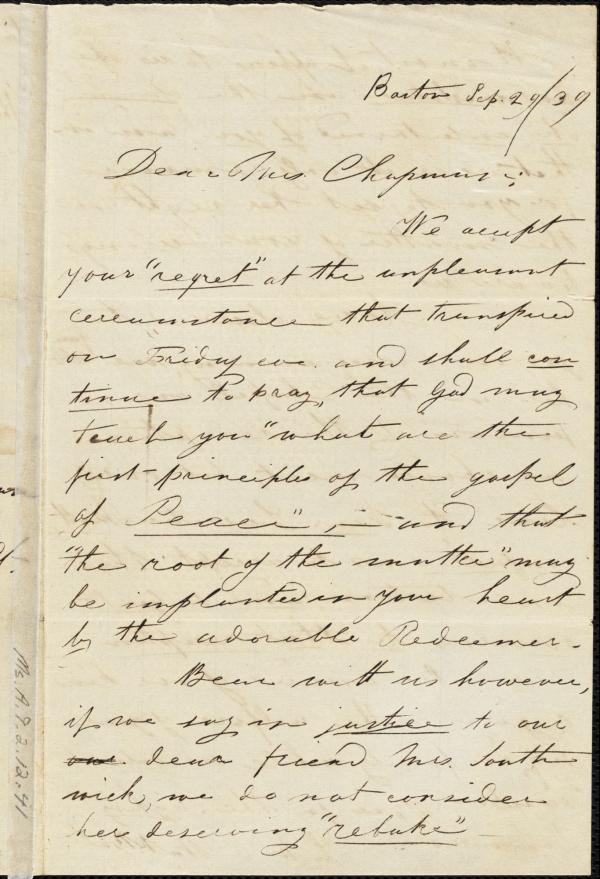 Boston Sep. 29/39
Dear Mrs. Chapman;
We accept
your "regret" at the unpleasant
circumstance that transpired
on Friday eve. and shall con
tinue to pray, that God may
teach you "what are the
first-principles of the gospel
of Peace", — and that
"the root of the matter" may
be implanted in your heart
by the adorable Redeemer.
Bear with us however,
if we say in justice to our
our dear friend Mrs. South
wick, we do not consider
her deserving "rebuke"
Ms. A.9.2.12.41